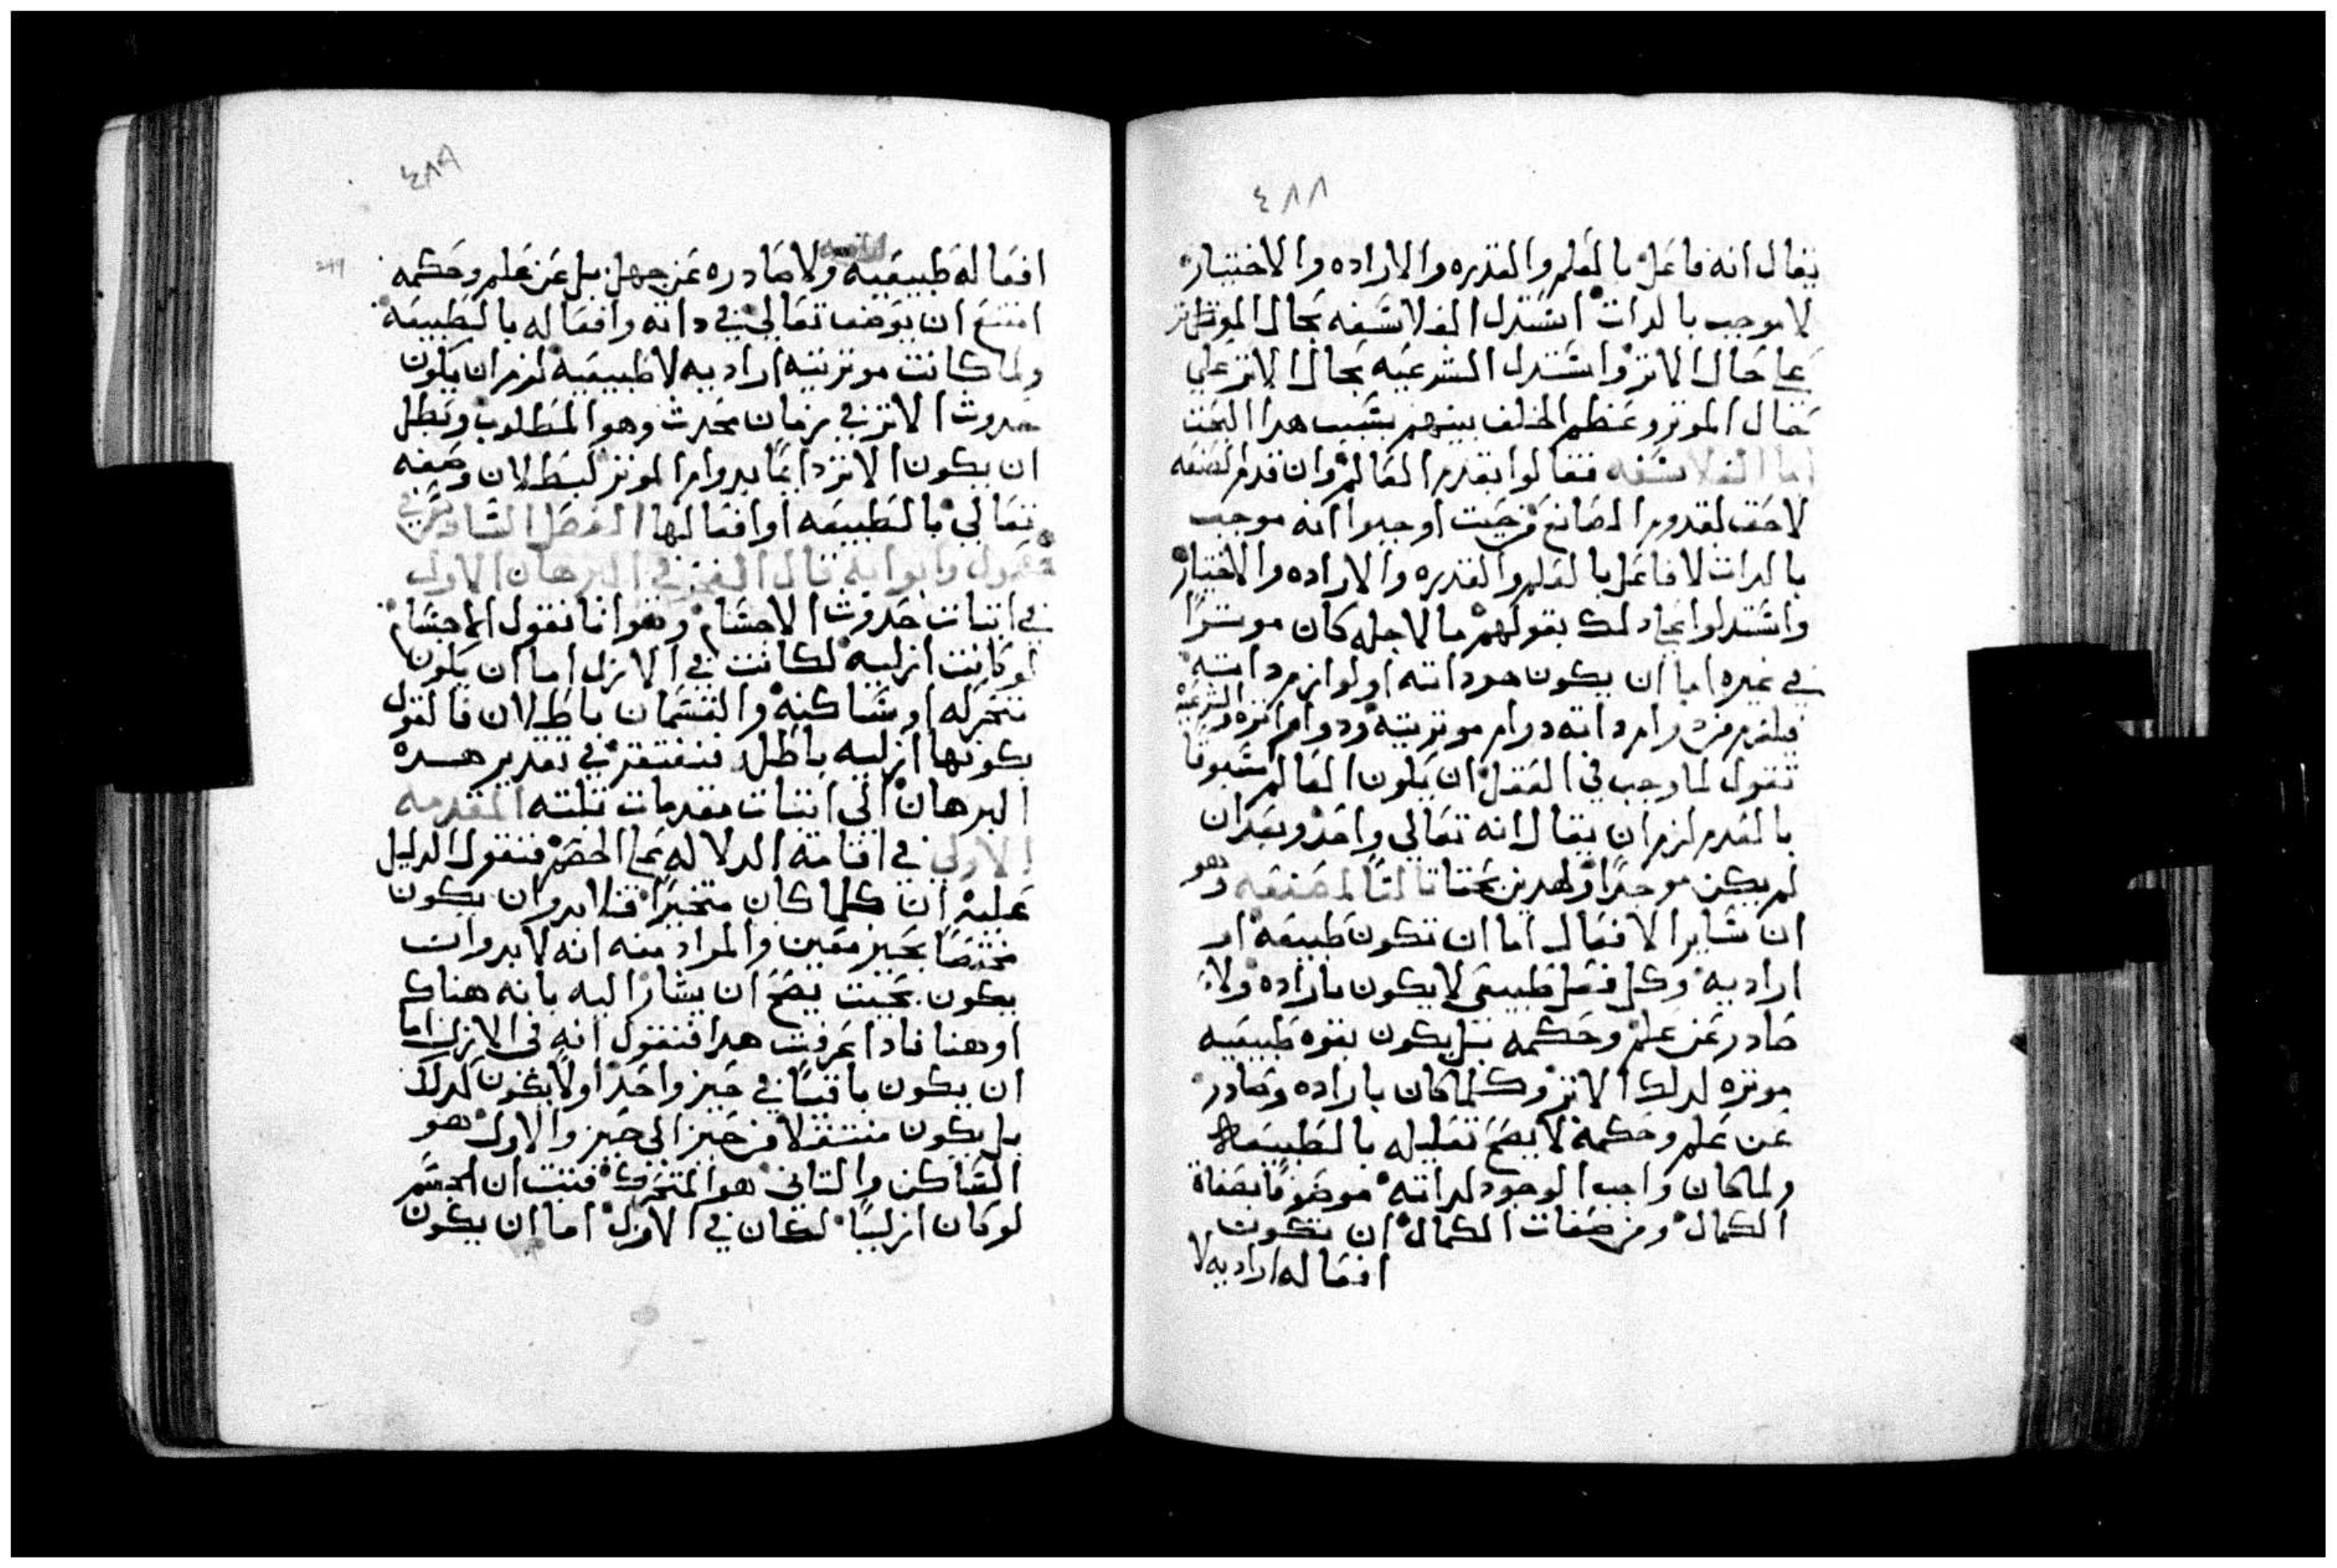 ٤٨٨
يقال انه فاعل بالعلم والقدره والاراده والاختيار
لا موجب بالدات استدل الفلاسفه بحال الموثر
علي حال الاتر واستدل الشرعيه بحال الاتر علي
حال الموتر وعظم الخلف بينهم بسبب هدا البحت
اما الفلاسفه فقالوا بقدم العالم وان قدم الصنعه
لاحق لقدم الصانع من حيت اوجبوا انه موجب
بالدات لا فاعل بالعلم والقدره والاراده والاختيار
واستدلوا علي دلك بقولهم ما لاجله كان موترا
في غيره اما ان يكون هو داته او لوازم داته
فيلزم من دوام داته دوام موتريته ودوام اتره والشرعيه
تقول لما وجب في العقل ان يكون العالم مسبوقا
بالعدم لزم ان يقال انه تعالي واحد وبعد ان
لم يكن موجدا ولهدين بحتا تالتا لمصنفه وهو
ان ساير الافعال اما ان تكون طبيعه او
اراديه وكل فعل طبيعي لا يكون باراده ولا
صادر عن علم وحكمه بل يكون بقوه طبيعيه
موتره لدلك الاتر وكلما كان باراده وصادر
عن علم وحكمة لا يصح تعليله بالطبيعة
ولما كان واجب الوجود لداته موصوفا بصفاة
الكمال ومن صفات الكمال ان تكون
افعاله اراديه لا
٤٨٩
افعاله طبيعيه ولا صادره عن جهل بل عن علم وحكمه
امتنع ان يوصف تعالي في داته وافعاله بالطبيعه
ولما كانت موتريته اراديه لا طبيعيه لزم ان يكون
حدوث الاتر في زمان محدث وهو المطلوب وبطل
ان يكون الاتر دايما بدوام الموتر لبطلان وصفه
تعالي بالطبيعه او افعالها الفصل السادس في
وابوابه قال الفخر في البرهان الاول
في اتبات حدوث الاجسام وهو انا نقول الاجسام
لو كانت ازليه لكانت في الازل اما ان يكون
متحركه او ساكنه والقسمان باطلان فالقول
بكونها ازليه باطل فنفتقر في تقدير هده
البرهان الي اتبات مقدمات تلته المقدمه
الاولي في اقامة الدلاله علي الخصم فنقول الدليل
عليه ان كلما كان متحيزا فلا بد وان يكون
مختصا بحيز معين والمراد منه انه لا بد وان
يكون بحيت يصح ان يشار اليه بانه هناك
او هنا فادا عرفت هدا فنقول انه في الازل اما
ان يكون باقيا في حيز واحد او لا يكون كدلك
بل يكون منتقلا من حيز الى حيز والاول هو
الساكن والتاني هو المتحرك فتبت ان الجسم
لو كان ازليا لكان في الازل اما ان يكون